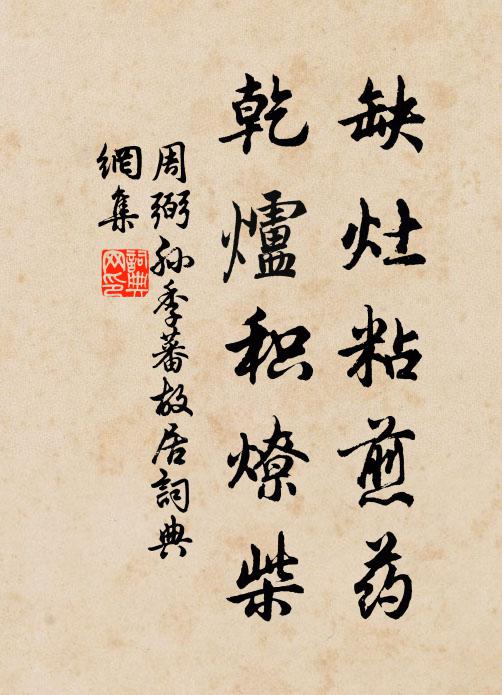 缺灶粘煎药
乾爐积燎柴
周弼孙季蕃故居詞典
網集
詞典网印